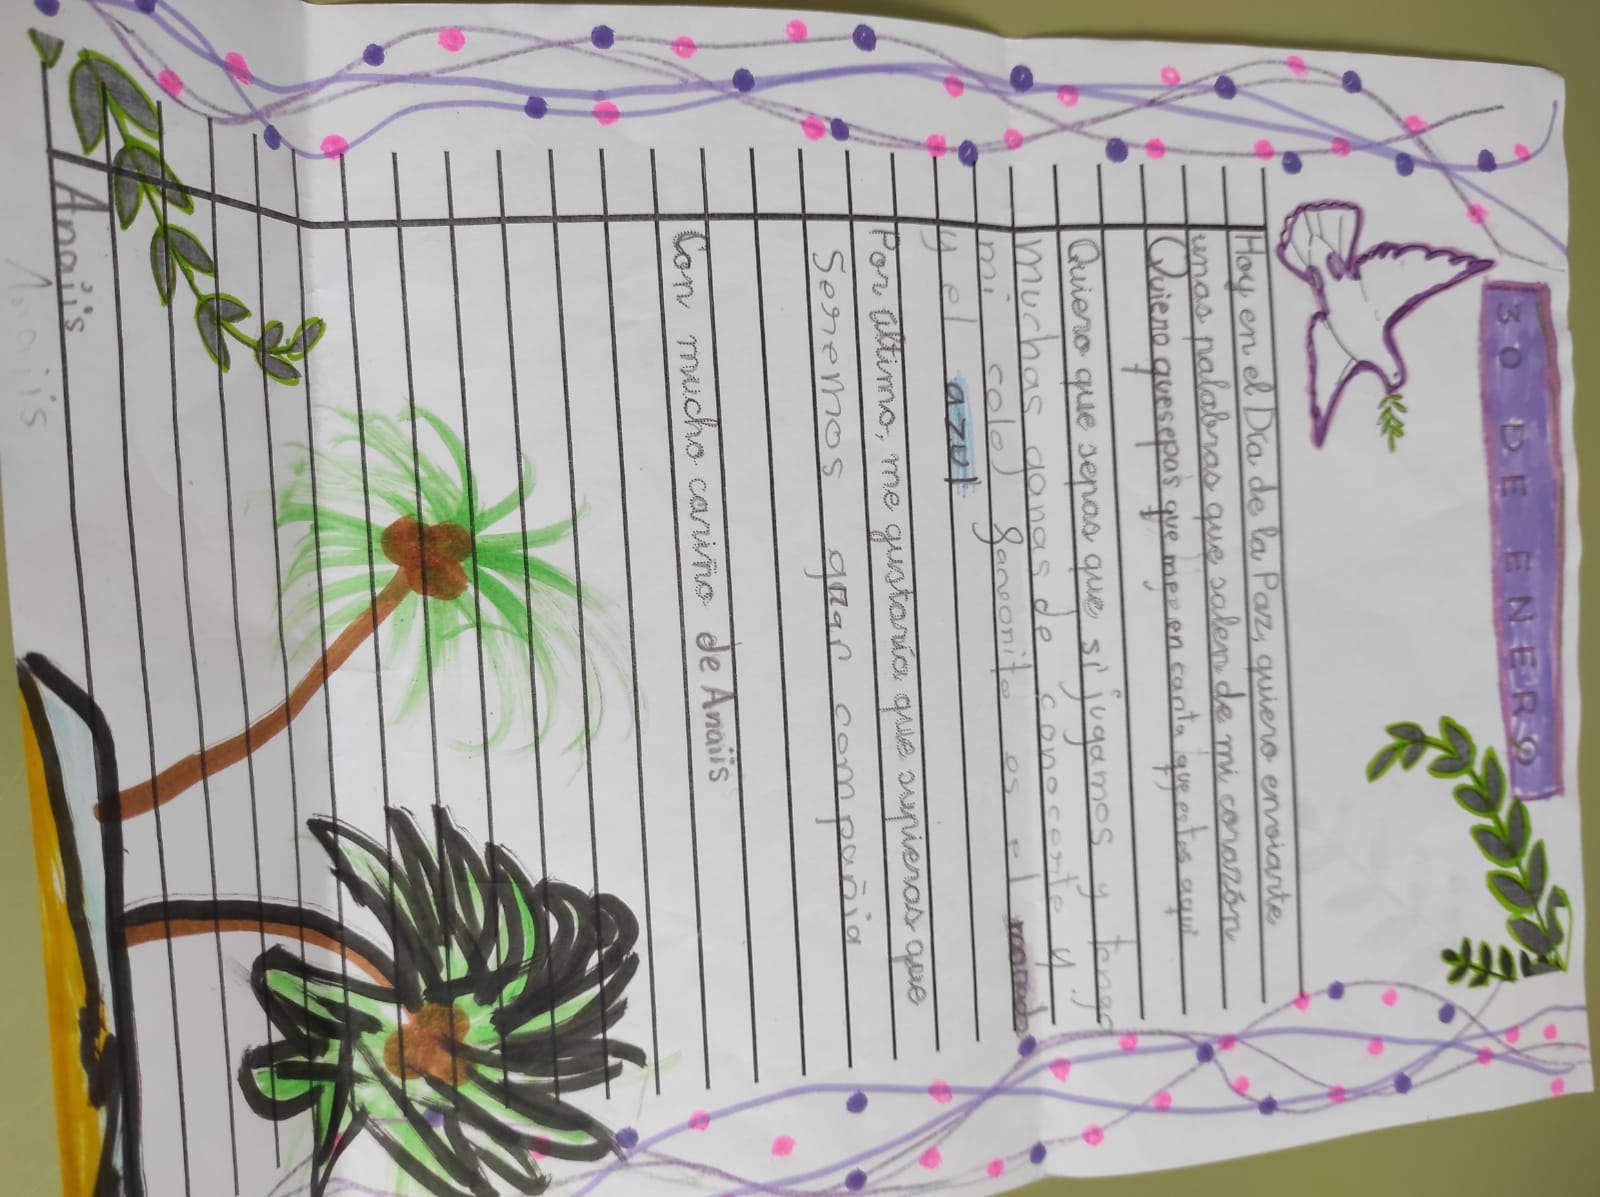 30 DE ENERO
Hoy en el Día de la Paz, quiero enviarte
unas palabras que salen de mi corazón
Quiero que sepas que me en canta que estes aquí
Quiero que sepas que si jugamos y tengo
muchas ganas de conocerte y
mi color favorito es el morado
y el azul
Por último, me gustaría que supieras que
Seremos gran compañia
Con mucho cariño de Anaiis
Anaiis
Anaiis